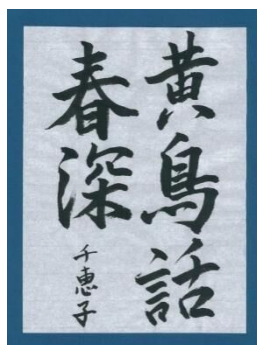 黄鳥話
春深
千恵子